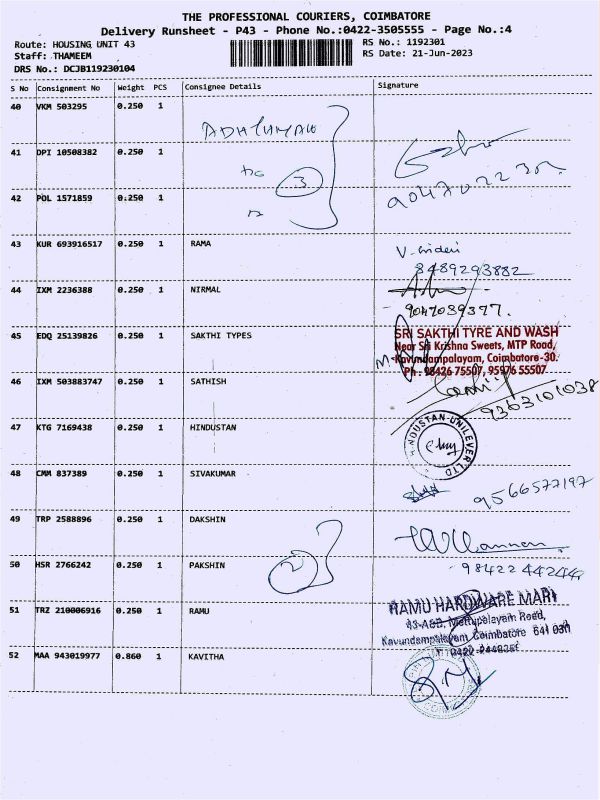 THE PROFESSIONAL COURIERS, COIMBATORE
Delivery Runsheet - P43 - Phone No.:0422-3505555 - Page No.:4
Route: HOUSING UNIT 43
Staff: THAMEEM
DRS No.: DCJB119230104
RS No.: 1192301
RS Date: 21-Jun-2023
S No Consignment No Weight PCS Consignee Details Signature
40 VKM 503295 0.250 1
41 DPI 10508382 0.250 1
3
42 POL 1571859 0.250 1
43 KUR 693916517 0.250 1 RAMA
8489293882
44 IXM 2236388 0.250 1 NIRMAL
9047039377.
45 EDQ 25139826 0.250 1 SAKTHI TYPES
SRI SAKTHI TYRE AND WASH
Near Sri Krishna Sweets, MTP Road,
Kavundampalayam, Coimbatore-30.
Ph: 98426 75507, 95976 55507
46 IXM 503883747 0.250 1 SATHISH
9363101038
47 KTG 7169438 0.250 1 HINDUSTAN
HINDUSTAN UNILEVER LTD
48 CMM 837389 0.250 1 SIVAKUMAR
9566577197
49 TRP 2588896 0.250 1 DAKSHIN
50 HSR 2766242 0.250 1 PAKSHIN
2
51 TRZ 210006916 0.250 1 RAMU
RAMU HARDWARE MART
Mettupalayam Road,
Kavundampalayam, Coimbatore 641 030
52 MAA 943019977 0.860 1 KAVITHA